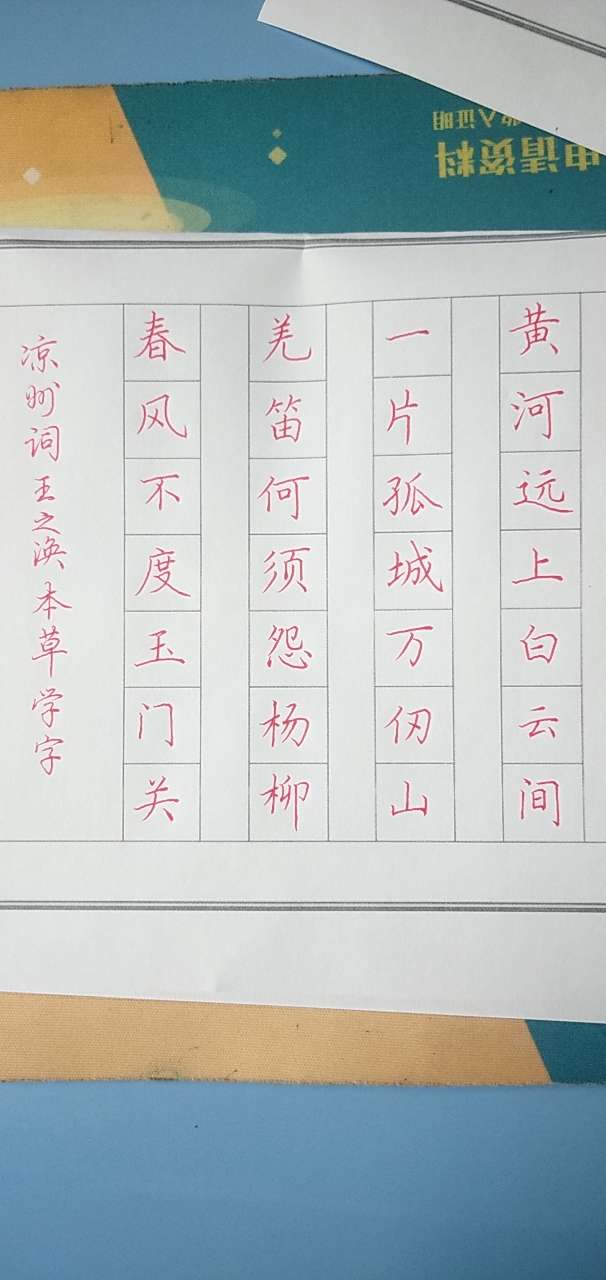 黄河远上白云间
一片孤城万仞山
羌笛何须怨杨柳
春风不度玉门关
凉州词 王之涣 本草学字
申请资料